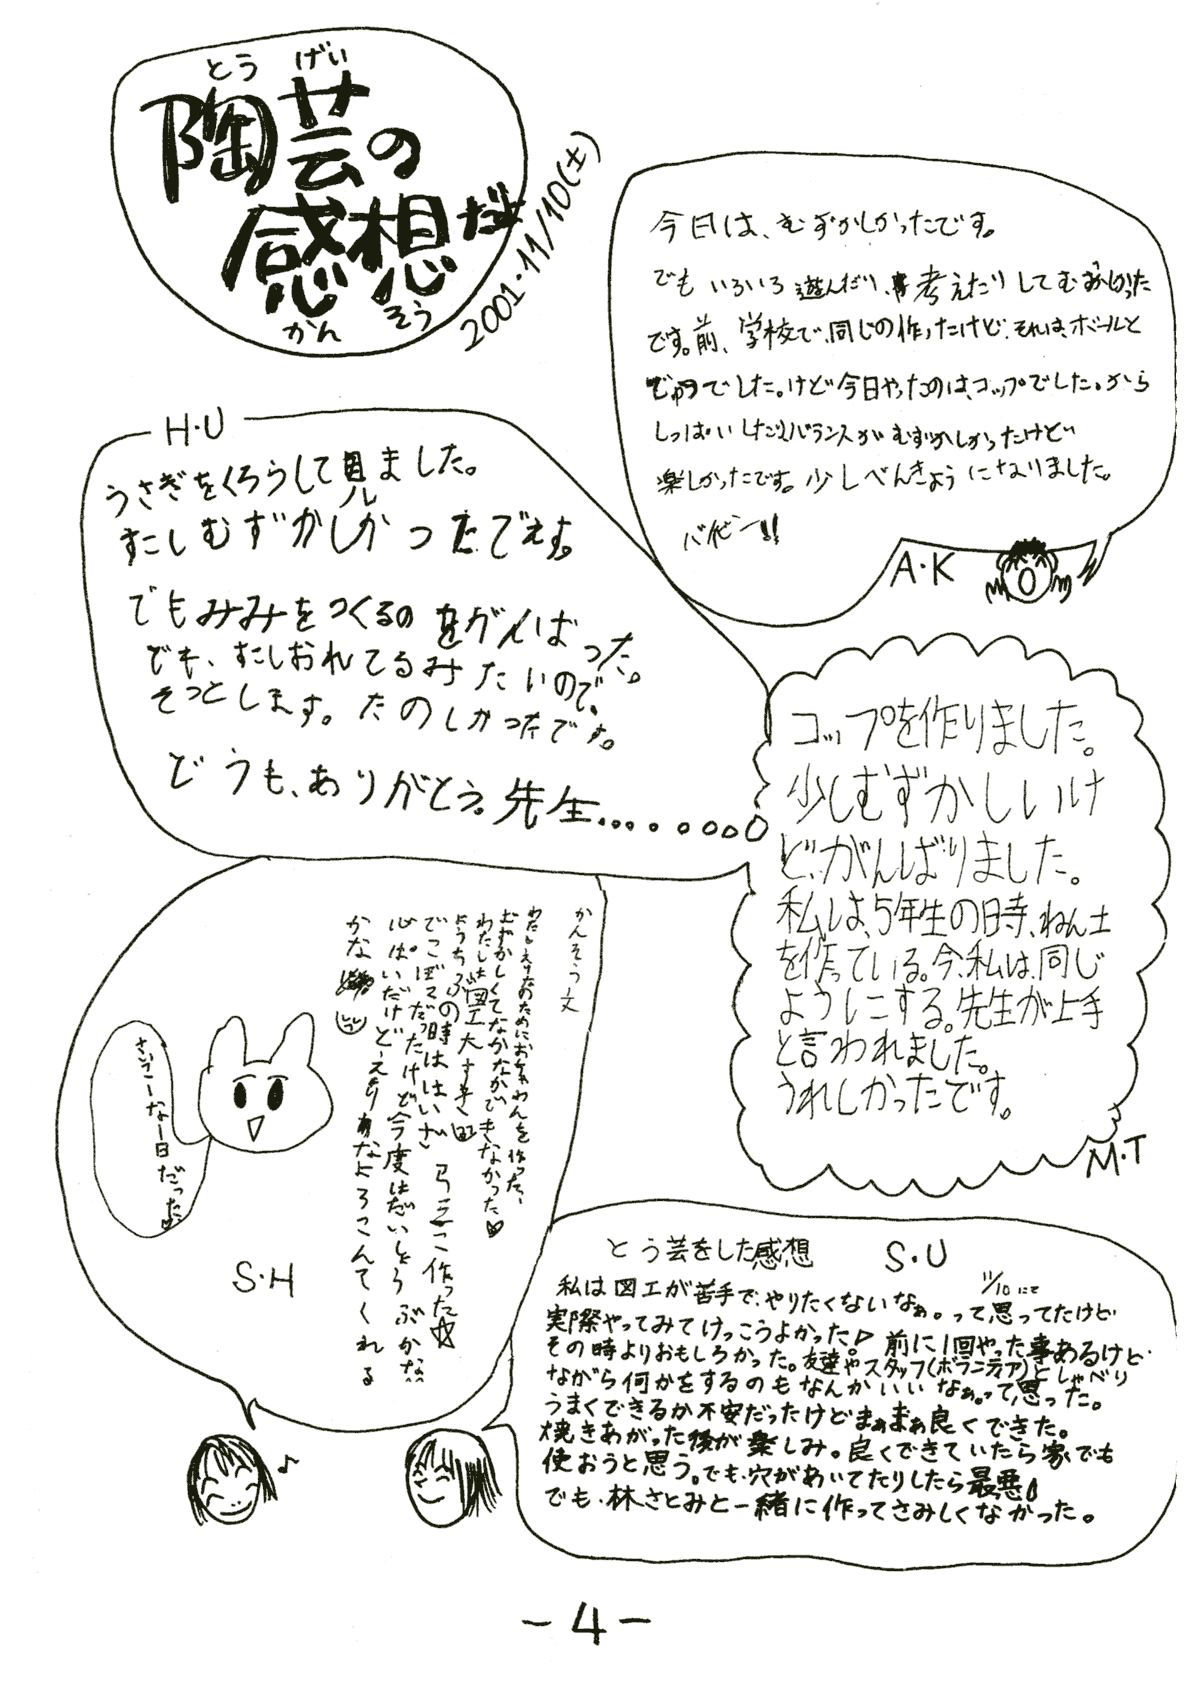 とう げい
陶芸の
感想だよ
かん そう
2001・11/10(土)
今日は、むずかしかったです。
でもいろいろ遊んだり、考えたりしてむずかしかった
です。前、学校で、同じの作ったけど、それは、ボールと
でした。けど今日やったのは、コップでした。から
しっぱいしたりバランスがむずかしかったけど
楽しかったです。少しべんきょうになりました。
バイビー!!
A・K
H・U
うさぎをくろうして見ました。
すこしむずかしかったでえす。
でもみみをつくるのをがんばった。
でも、すこしおれてるみたいので、
そっとします。たのしかったです。
どうも、ありがとう。先生...。。。。。。
コップを作りました。
少しむずかしいけ
ど、がんばりました。
私しは、5年生の日寺、ねん土
を作っている。今、私は、同じ
ようしにする。先生が上手
と言われました。
うれしかったです。
M・T
かんそう文
わたしえりなのためにおちゃわんを作った、
むずかしくてなかなかできなかった♥
わたしは図工大すき
ようちぶの時ははいざら 作った☆
でこぼこだったけど今度はだいじょうぶかな
心ぱいだけどえりなよろこんでくれる
かな
さいこーな一日だった
S・H
とう芸をした感想 S・U
11/10にて
私は図工が苦手で、やりたくないなぁ。って思ってたけど
実際やってみてけっこうよかった♪前に1回やった事あるけど
その時よりおもしろかった。友達やスタッフ(ボランティア)としゃべり
ながら何かをするのもなんかいいなぁって、思った。
うまくできるか不安だったけどまぁまぁ良くできた。
焼きあがった後が楽しみ。良くできていたら家でも
使おうと思う。でも、穴があいてたりしたら最悪
でも、林さとみと一緒に作ってさみしくなかった。
-4-